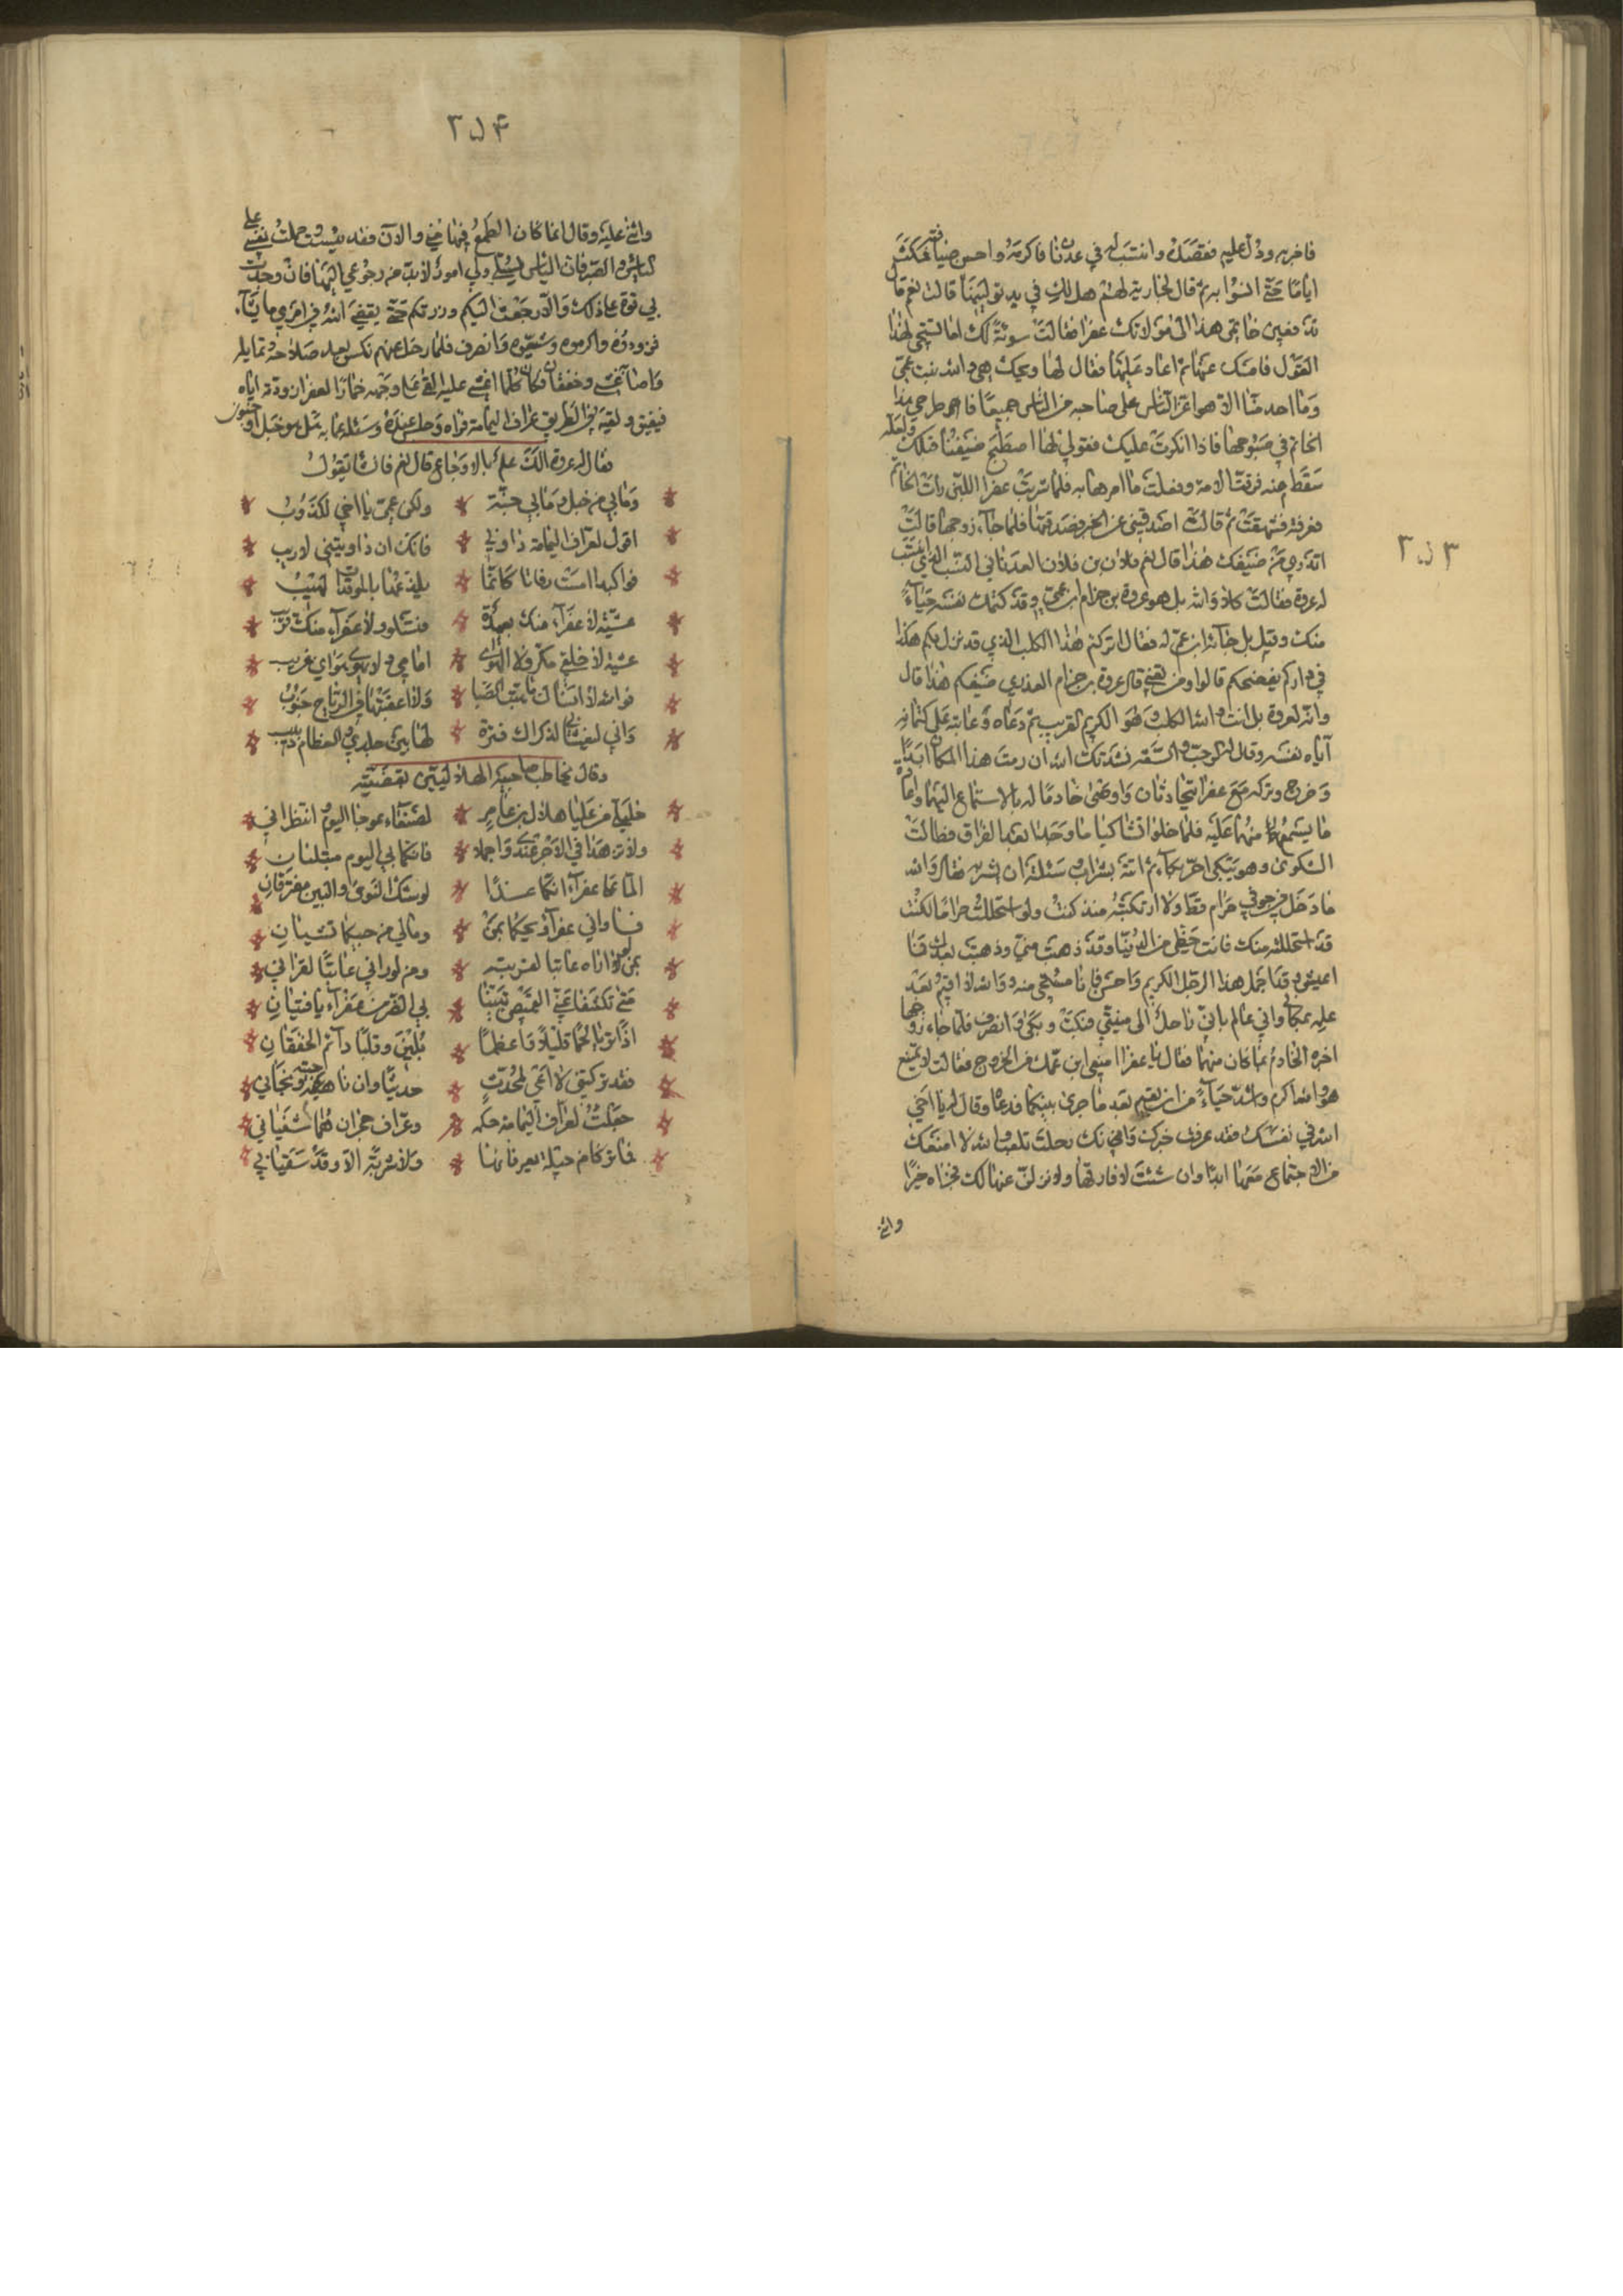 ٢٥٣
فاخبر به ودل عليه فقصده وانتسب له في عدنان فاكرمه واحسن ضيافته فمكث
اياما حتى انسوا به ثم قال لجارية لهم هل لك في يد تولينها قالت نعم قال
تدفعين خاتمي هذا الى مولاتك عفرا فقالت سوئة لك اما تستحي لهذا
القول فامسك عنها ثم اعاد عليها فقال لها ويحك هي والله بنت عمي
وما احد منا الا هو اعز الناس على صاحبه من الناس جميعا فاطرحي هذا
الخاتم في صبوحها فاذا انكرت عليك فقولي لها اصطبح ضيفنا قبلك ولعله
سقط منه فرقت الامة وفعلت ما امرها به فلما شربت عفرا اللبن رأت الخاتم
فعرفته فشهقت ثم قالت اصدقيني عن الخبر فصدقتها فلما جاء زوجها قالت
اتدري من ضيفك هذا قال نعم فلان بن فلان العدناني النسب الذي انتسب
له عروة فقالت كلا والله بل هو عروة بن حزام ابن عمي وقد كتمك نفسه حياء
منك وقيل بل جاء ابن عم له فقال اتركتم هذا الكلب الذي قد نزل بكم هكذا
في داركم يفضحكم قالوا ومن تعني قال عروة بن حزام العذري ضيفكم هذا قال
وانه لعروة بل انت والله الكلب وهو الكريم القريب ثم دعاه وعاتبه على كتمانه
اياه نفسه وقال له بالرحب والسعة نشدتك الله ان رمت هذا المكان ابدا
وخرج وتركه مع عفرا يتحادثان واوصى خادما له بالاستماع اليهما واعادة
ما يسمع منهما عليه فلما خلوا تشاكيا ما وجدا بعد الفراق فطالت
الشكوى وهو يبكي احر بكاء ثم اتته بشراب وسئلته ان يشربه فقال والله
ما دخل في جوفي حرام قط ولا ارتكبته منذ كنت ولو استحللت حراما لكنت
قد استحللته منك فانت حظي من الدنيا وقد ذهبت مني وذهبت بعدك فما
اعيش وقد اجمل هذا الرجل الكريم واحسن فانا مستحي منه ووالله لا اقيم بعد
علمه بمكاني واني عالم باني راحل الى منيتي فبكت وبكى وانصرف فلما جاء زوجها
اخبره الخادم بما كان منهما فقال يا عفرا امنعي ابن عمك من الخروج فقالت لا يمتنع
هو والله اكرم واشد حياء من ان يقيم بعد ما جرى بينكما فدعاه وقال له يا اخي
الله في نفسك فقد عرفت خبرك وانك ان رحلت تلفت والله لا امنعك
من الاجتماع معها ابدا وان شئت لافارقنها ولانزلن عنها لك فجزاه خيرا
واثنى
٢٥٤
واثنى عليه وقال انما كان الطمع فيها مني والآن فقد يئست وحملت نفسي على
الياس والصبر فان الياس يسلي ولي امور لا بد من رجوعي اليها فان وجدت
بي قوة على ذلك والا رجعت اليكم وزرتكم حتى يقضي الله في امري ما يشاء
فزودوه واكرموه وشيعوه وانصرف فلما رحل عنهم نكس بعد صلاحه وتمايله
واصابه غشي وخفقان فكان كلما اغمي عليه القي على وجهه خمارا لعفرا زودته اياه
فيفيق ولقيه في الطريق عراف اليمامة فراه وجلس عنده وسئله عما به هل هو خبل او جنون
فقال له عروة الك علم بالاوجاع قال نعم فانشا يقول
وما بي من خبل وما بي جنة * ولكن عمي يا اخي لكذوب
اقول لعراف اليمامة داوني * فانك ان داويتني لاريب
فواكبدا امست رفاتا كانما * يلذعها بالموقدات لهيب
عشية لا عفراء منك بعيدة * فتسلو ولا عفراء منك قريب
عشية لا خلفي مكر ولا الهوى * امامي ولا يهوى هواي غريب
فوالله لا انساك ما هبت الصبا * وما عقبتها في الرياح جنوب
واني لتغشاني لذكراك فترة * لها بين جلدي والعظام دبيب
وقال يخاطب صاحبيه الهلاليين بقضيته
خليلي من عليا هلال بن عامر * لصنعاء عوجا اليوم انتظراني
ولا تزهدا في الاجر عندي واجملا * فانكما بي اليوم مبتليان
الما على عفراء انكما غدا * لوشك النوى والبين مفترقان
فيا واشي عفراء ويحكما بمن * وما لي من جئتما تشيان
بمن لو اراه عانيا لفديته * ومن لو راني عانيا لفداني
متى تكشفا عني القميص تبينا * بي الضر من عفراء يا فتيان
اذا تريا لحما قليلا واعظما * بلين وقلبا دائم الخفقان
فقد تركتني لا اعي لمحدث * حديثا وان ناجيته ونجاني
جعلت لعراف اليمامة حكمه * وعراف حجران هما شفياني
فما تركا من حيلة يعرفانها * ولا شربة الا وقد سقياني